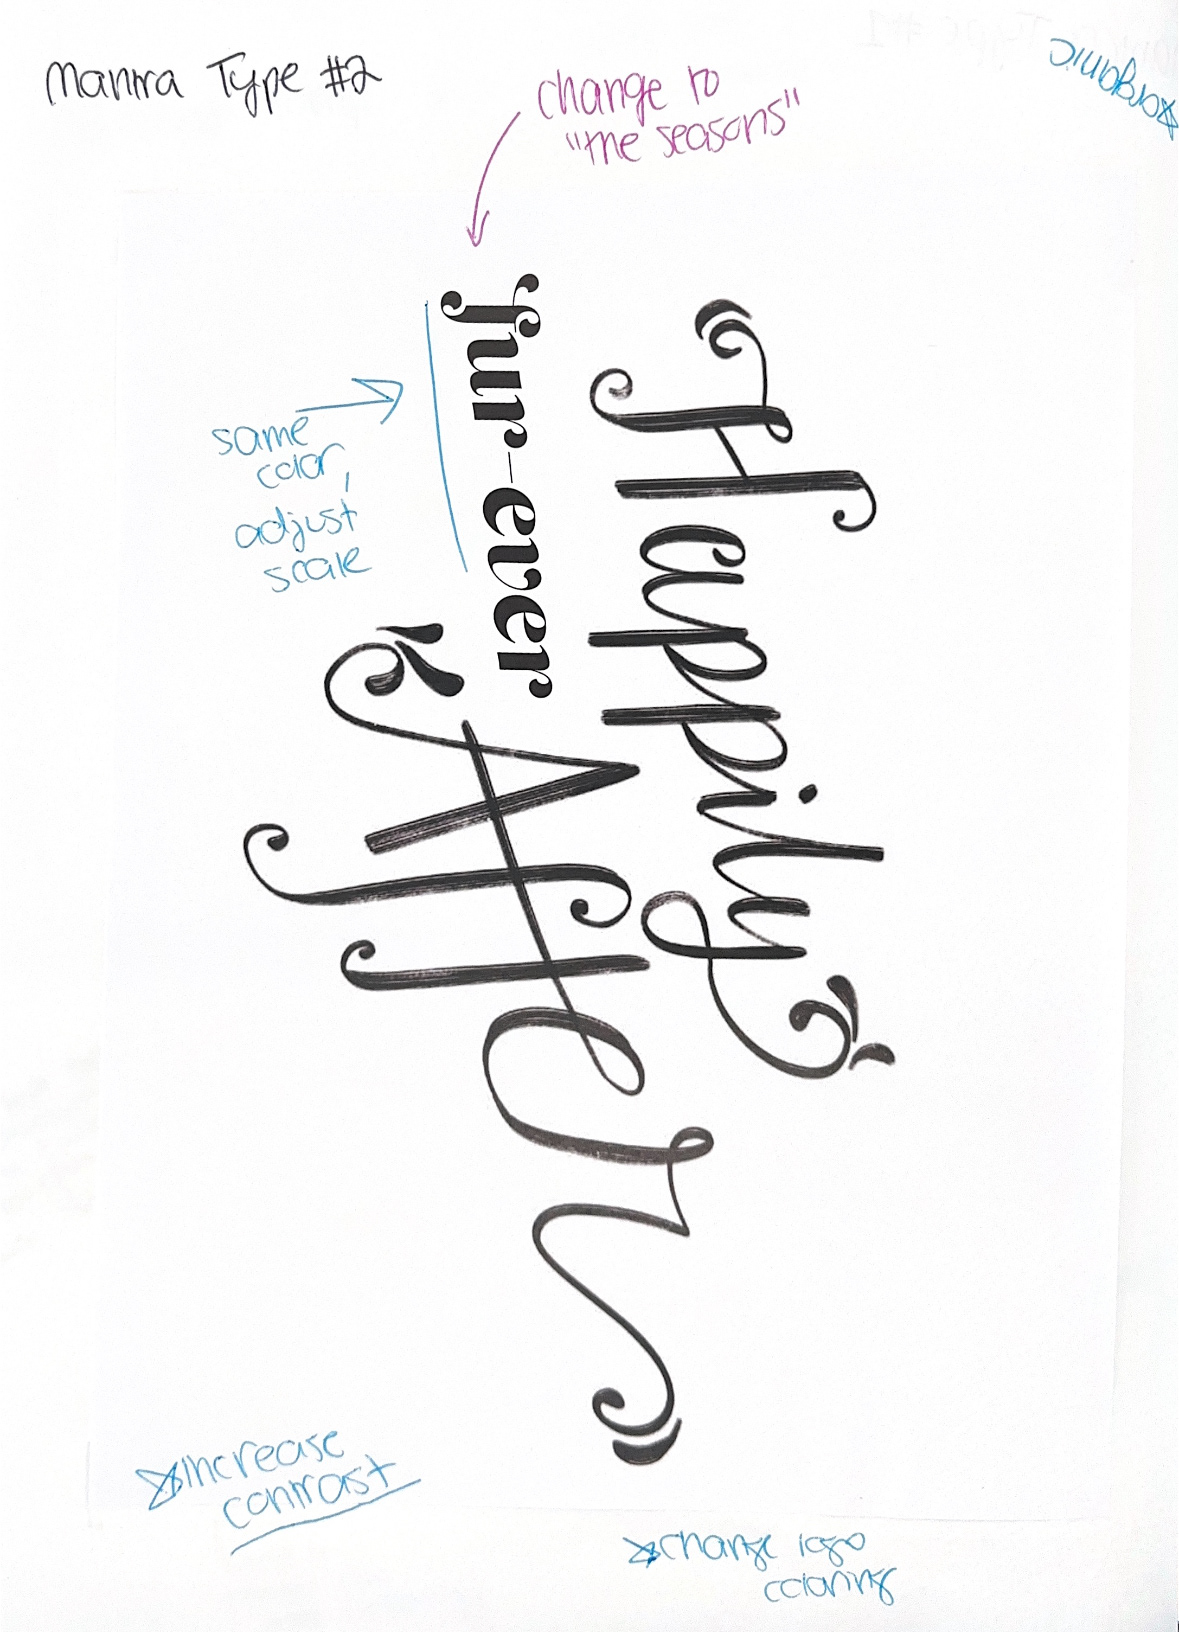 Mantra Type #2
☆organic
change to
"the seasons"
Happily
fur-ever
After
same
color,
adjust
scale
☆increase
contrast
☆change logo
coloring